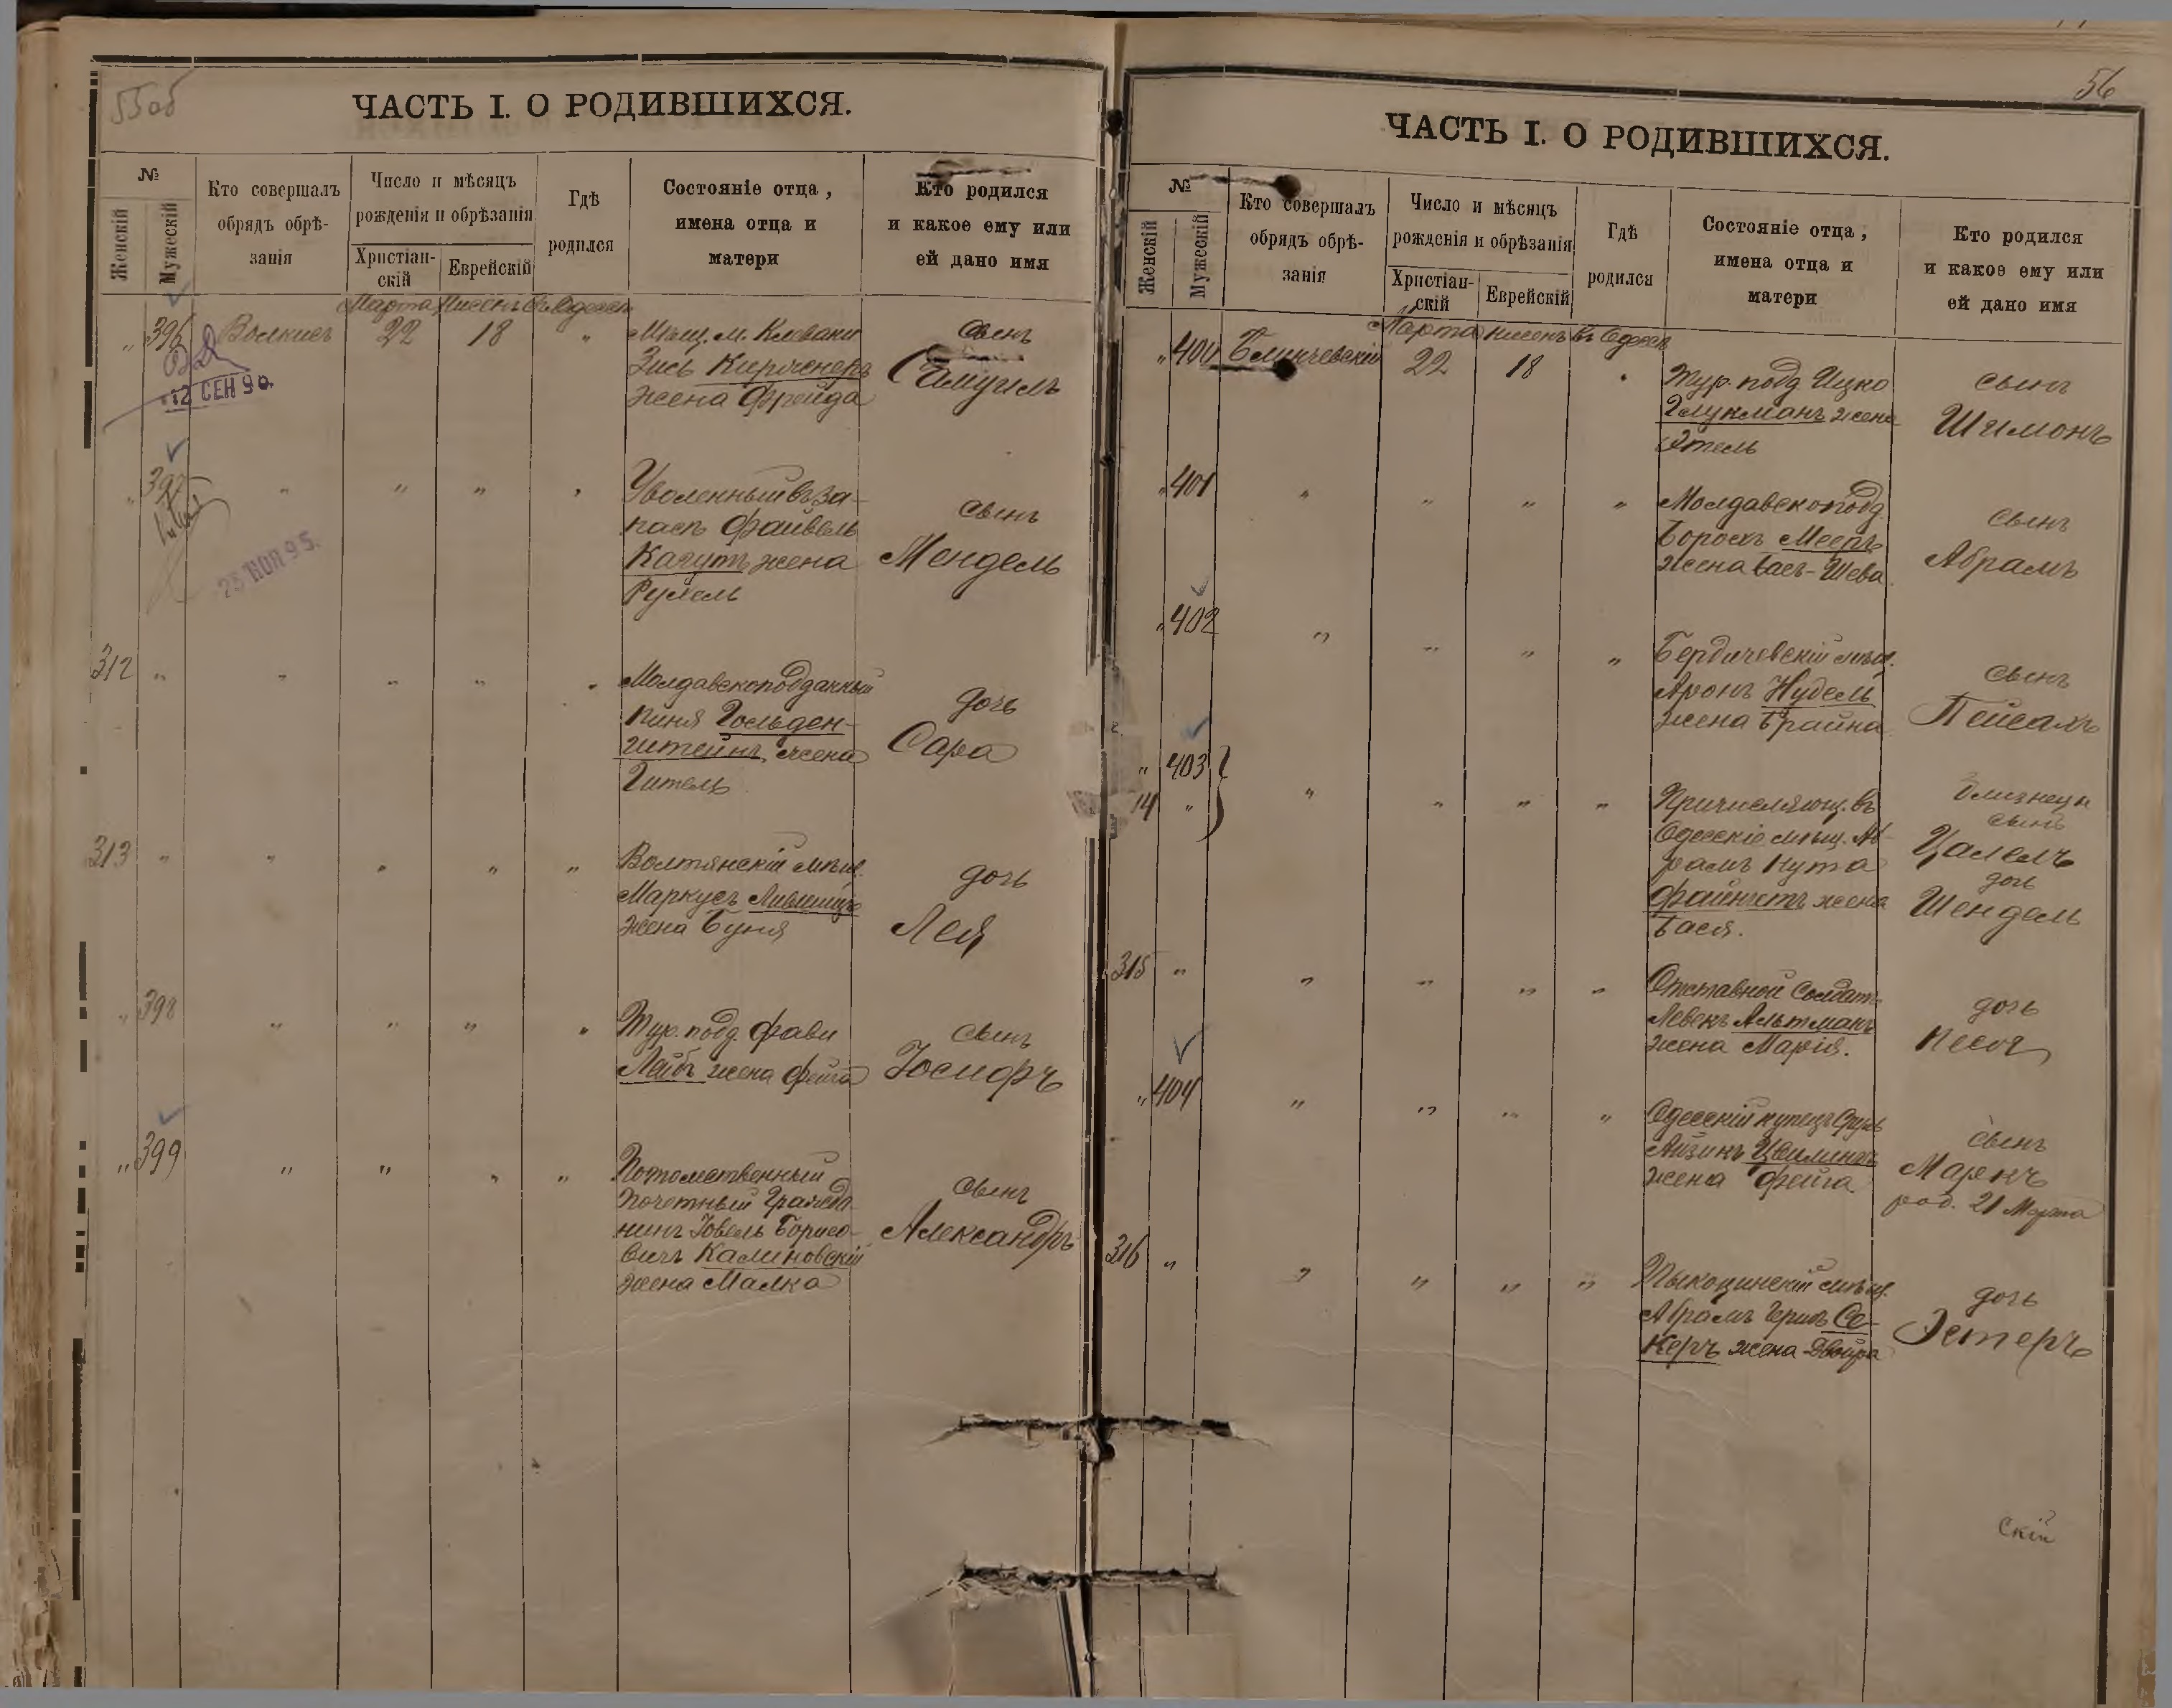 55об
ЧАСТЬ I. О РОДИВШИХСЯ.
№
Женскій
Мужескій
Кто совершалъ
обрядъ обрѣ-
занія
Число и мѣсяцъ
рожденія и обрѣзанія
Христіан-
скій
Еврейскій
Гдѣ
родился
Состояніе отца,
имена отца и
матери
Кто родился
и какое ему или
ей дано имя
Марта Нисенъ въ Одессѣ
" 396 Волкисъ 22 18 "
Мѣщ. м. Клевани
Зись Киршнеръ
жена Фрейда
сынъ
Самуилъ
12 СЕН 90.
" 397 " " " "
Уволенный въ за-
пасъ Файвель
Качутъ жена
Рухель
сынъ
Мендель
25 НОЯ 95.
312 " " " " "
Молдавскоподданный
Пиня Гольден-
штейнъ, жена
Гитель
дочь
Сара
313 " " " " "
мѣщ.
Маркусъ Лившицъ
жена Буня
дочь
Лея
" 398 " " " "
Тур. подд. Фави
Лайбъ жена Фейга
сынъ
Іосифъ
" 399 " " " "
Потомственный
почетный гражда-
нинъ Іовель Борисо-
вичъ Калиновскій
жена Малка
сынъ
Александръ
56
ЧАСТЬ I. О РОДИВШИХСЯ.
№
Женскій
Мужескій
Кто совершалъ
обрядъ обрѣ-
занія
Число и мѣсяцъ
рожденія и обрѣзанія
Христіан-
скій
Еврейскій
Гдѣ
родился
Состояніе отца,
имена отца и
матери
Кто родился
и какое ему или
ей дано имя
Марта нисенъ въ Одессѣ
" 400 Блинчевскій 22 18 "
Тур. подд. Ицко
Глукманъ жена
Этель
сынъ
Шимонъ
" 401 " " " "
Молдавскоподд.
Борохъ Мееръ
жена Бася-Шева
сынъ
Абрамъ
" 402 " " " "
Бердичевскій мѣщ.
Аронъ Нудель
жена Брайна
сынъ
Пейсахъ
" 403
14 " " " " "
Причисляющ. въ
Одесскіе мѣщ. Аб-
рамъ Нута
жена
Бася.
близнецы
сынъ
Цалелъ
дочь
Шендель
315 " " " " "
Отставной солдатъ
Левекъ Альтманъ
жена Марія.
дочь
Песя
" 404 " " " "
Одесскій купецъ Сруль
Айзикъ
жена Фейга
сынъ
Маркъ
род. 21 Марта
316 " " " " "
Тыкоцинскій мѣщ.
Абрамъ Гершъ Се-
керъ жена Двойра
дочь
Эстеръ
скій